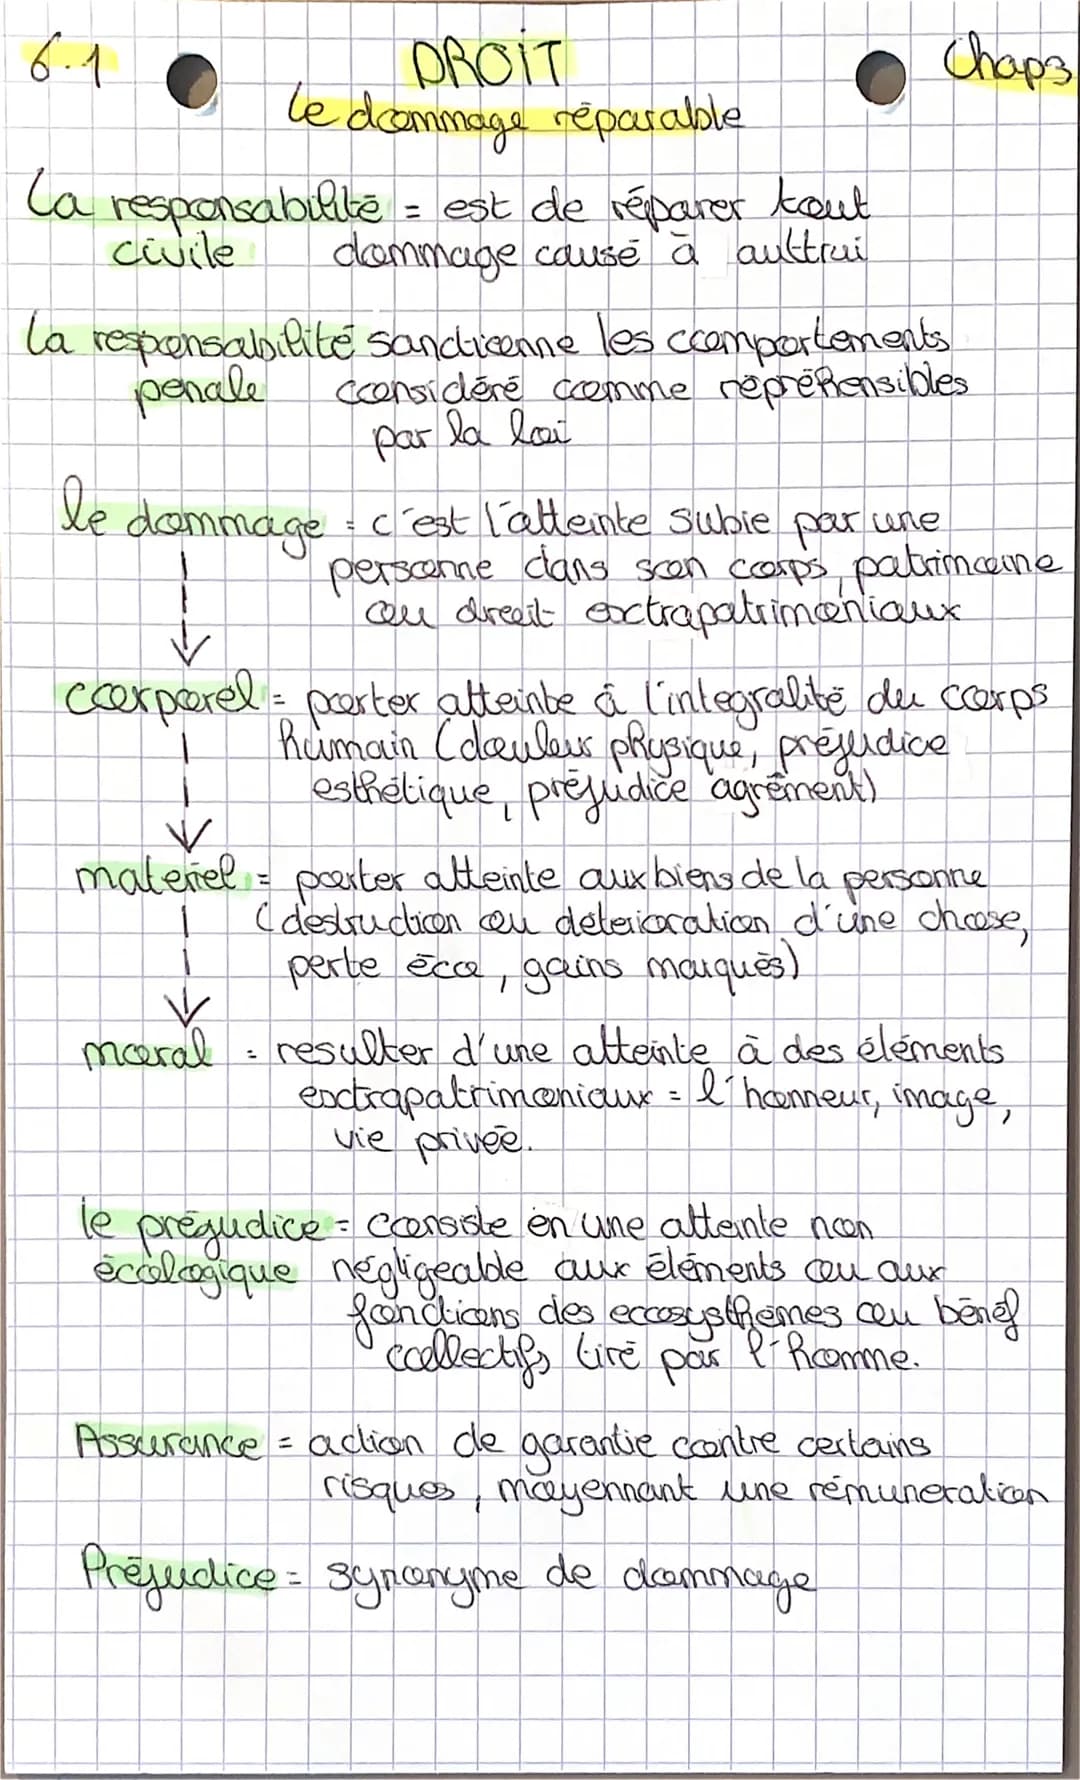 6.1 DROIT Chap3
Le dommage réparable
La responsabilité = est de réparer tout
civile dommage causé à auttrui
La responsabilité sanctionne les comportements
penale considéré comme répréhensibles
par la loi
le dommage = c'est l'atteinte subie par une
personne dans son corps, patrimoine
ou droit exctrapatrimoniaux
corporel = porter atteinte à l'integralité du corps
humain (douleur physique, préjudice
esthétique, préjudice agrément)
materiel = porter atteinte aux biens de la personne
(destruction ou deterioration d'une chose,
perte éco, gains marqués)
moral = resulter d'une atteinte à des éléments
exctrapatrimoniaux = l'honneur, image,
vie privée.
le préjudice = consiste en une atteinte non
écologique négligeable aux éléments ou aux
fonctions des ecosysthèmes ou bénéf
collectifs tiré par l'homme.
Assurance = action de garantie contre certains
risques, moyennant une rémuneration
Préjudice = synonyme de dommage